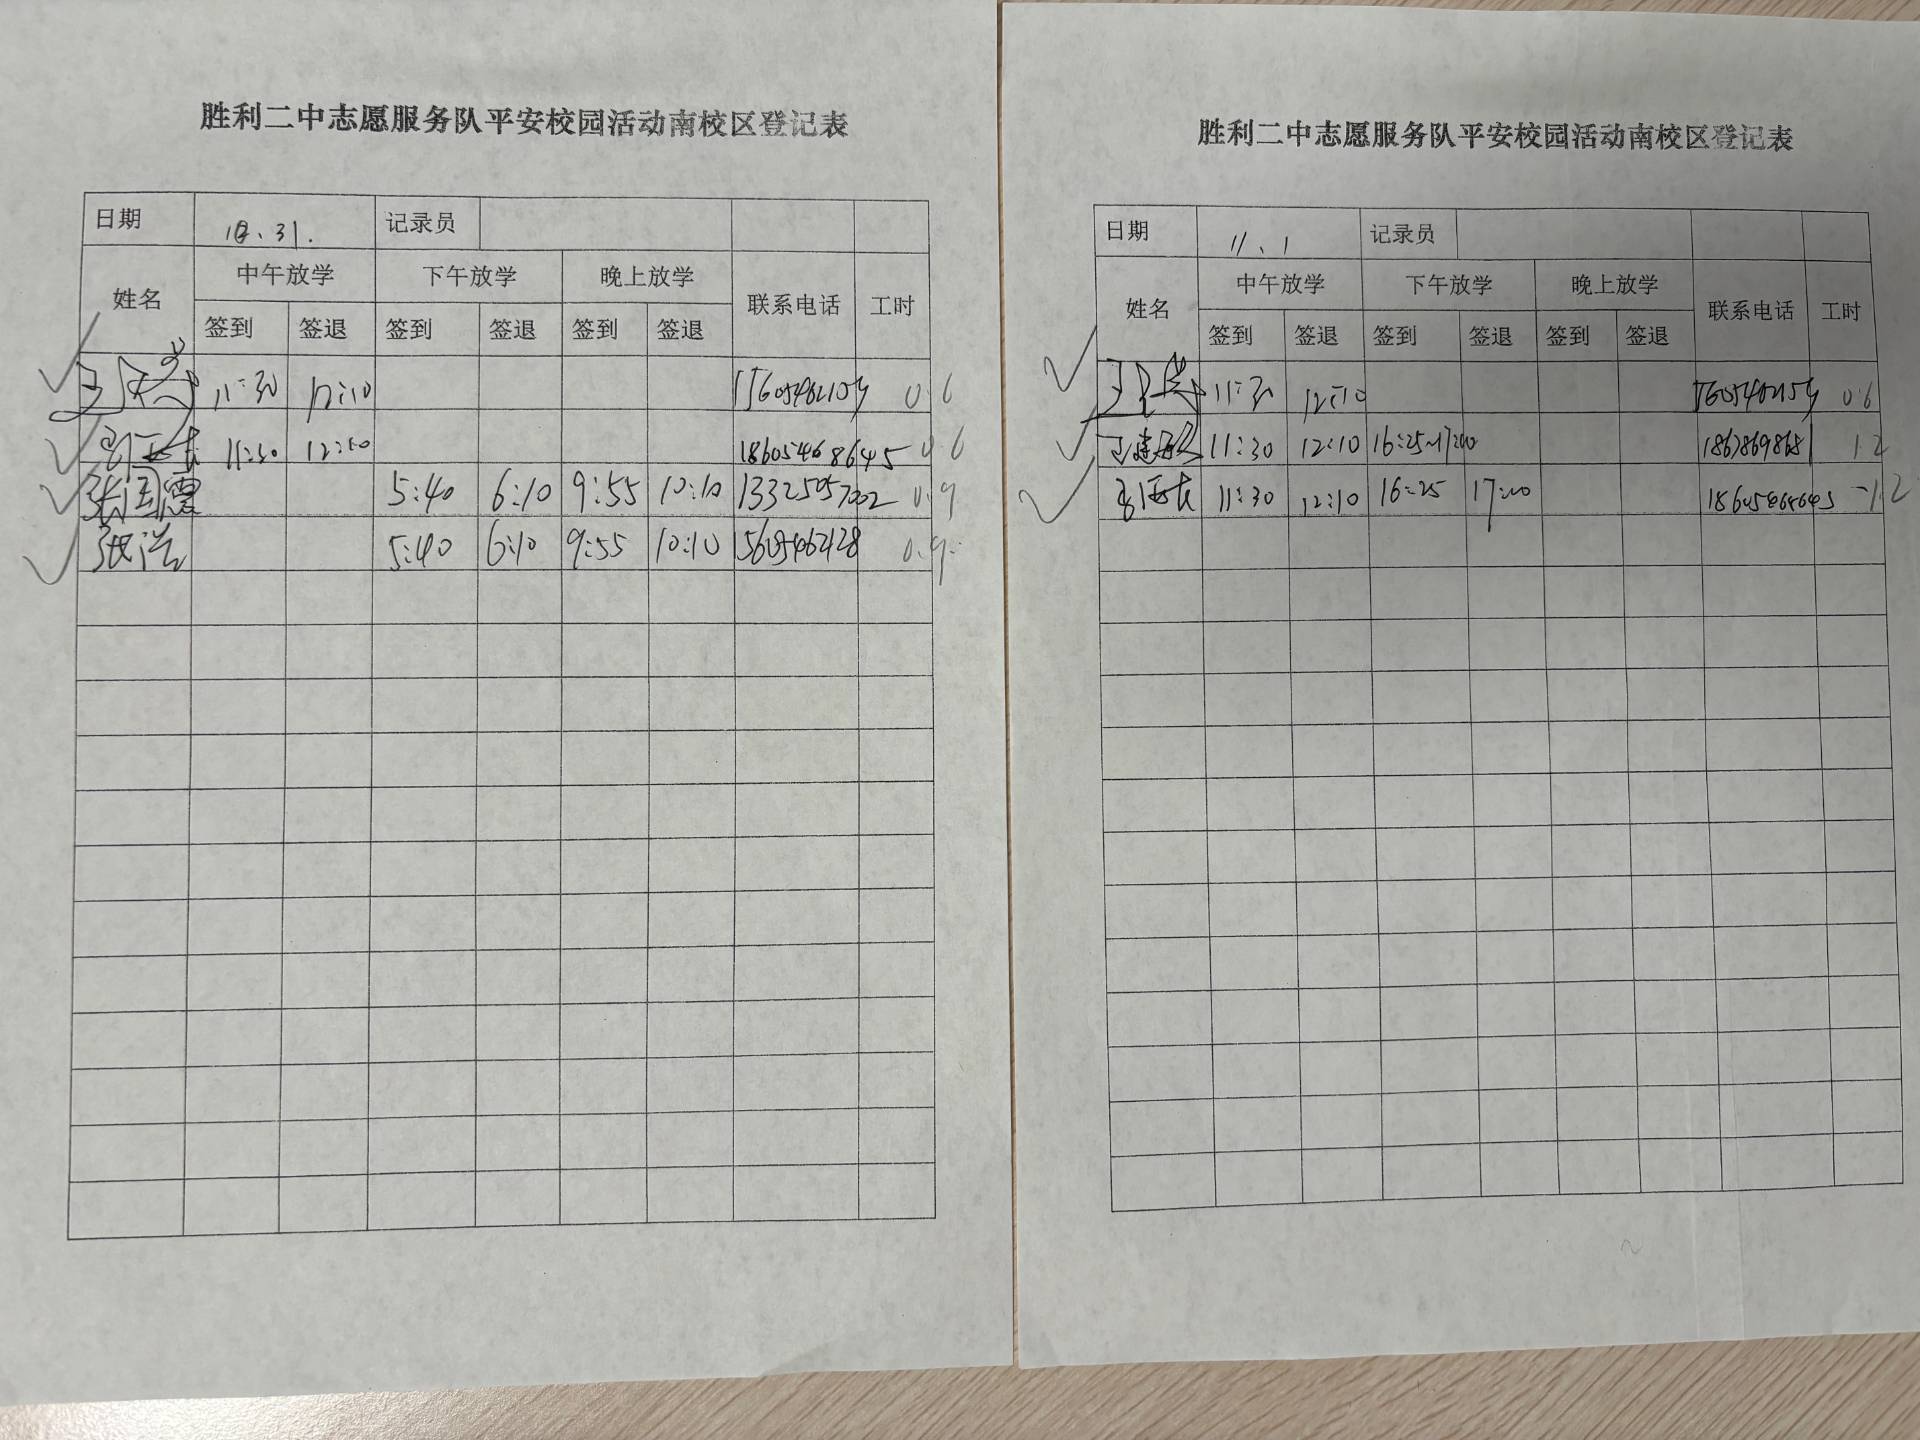 胜利二中志愿服务队平安校园活动南校区登记表
日期 10、31. 记录员
姓名 中午放学 下午放学 晚上放学 联系电话 工时
签到 签退 签到 签退 签到 签退
11:30 12:10 15605462154 0.6
11:30 12:10 18605468645 0.6
张国霞 5:40 6:10 9:55 10:10 13325057002 0.9
张浩 5:40 6:10 9:55 10:10 15605462128 0.9
胜利二中志愿服务队平安校园活动南校区登记表
日期 11、1 记录员
姓名 中午放学 下午放学 晚上放学 联系电话 工时
签到 签退 签到 签退 签到 签退
11:30 12:10 0.6
11:30 12:10 16:25~17:00 1.2
11:30 12:10 16:25 17:00 18605468645 1.2